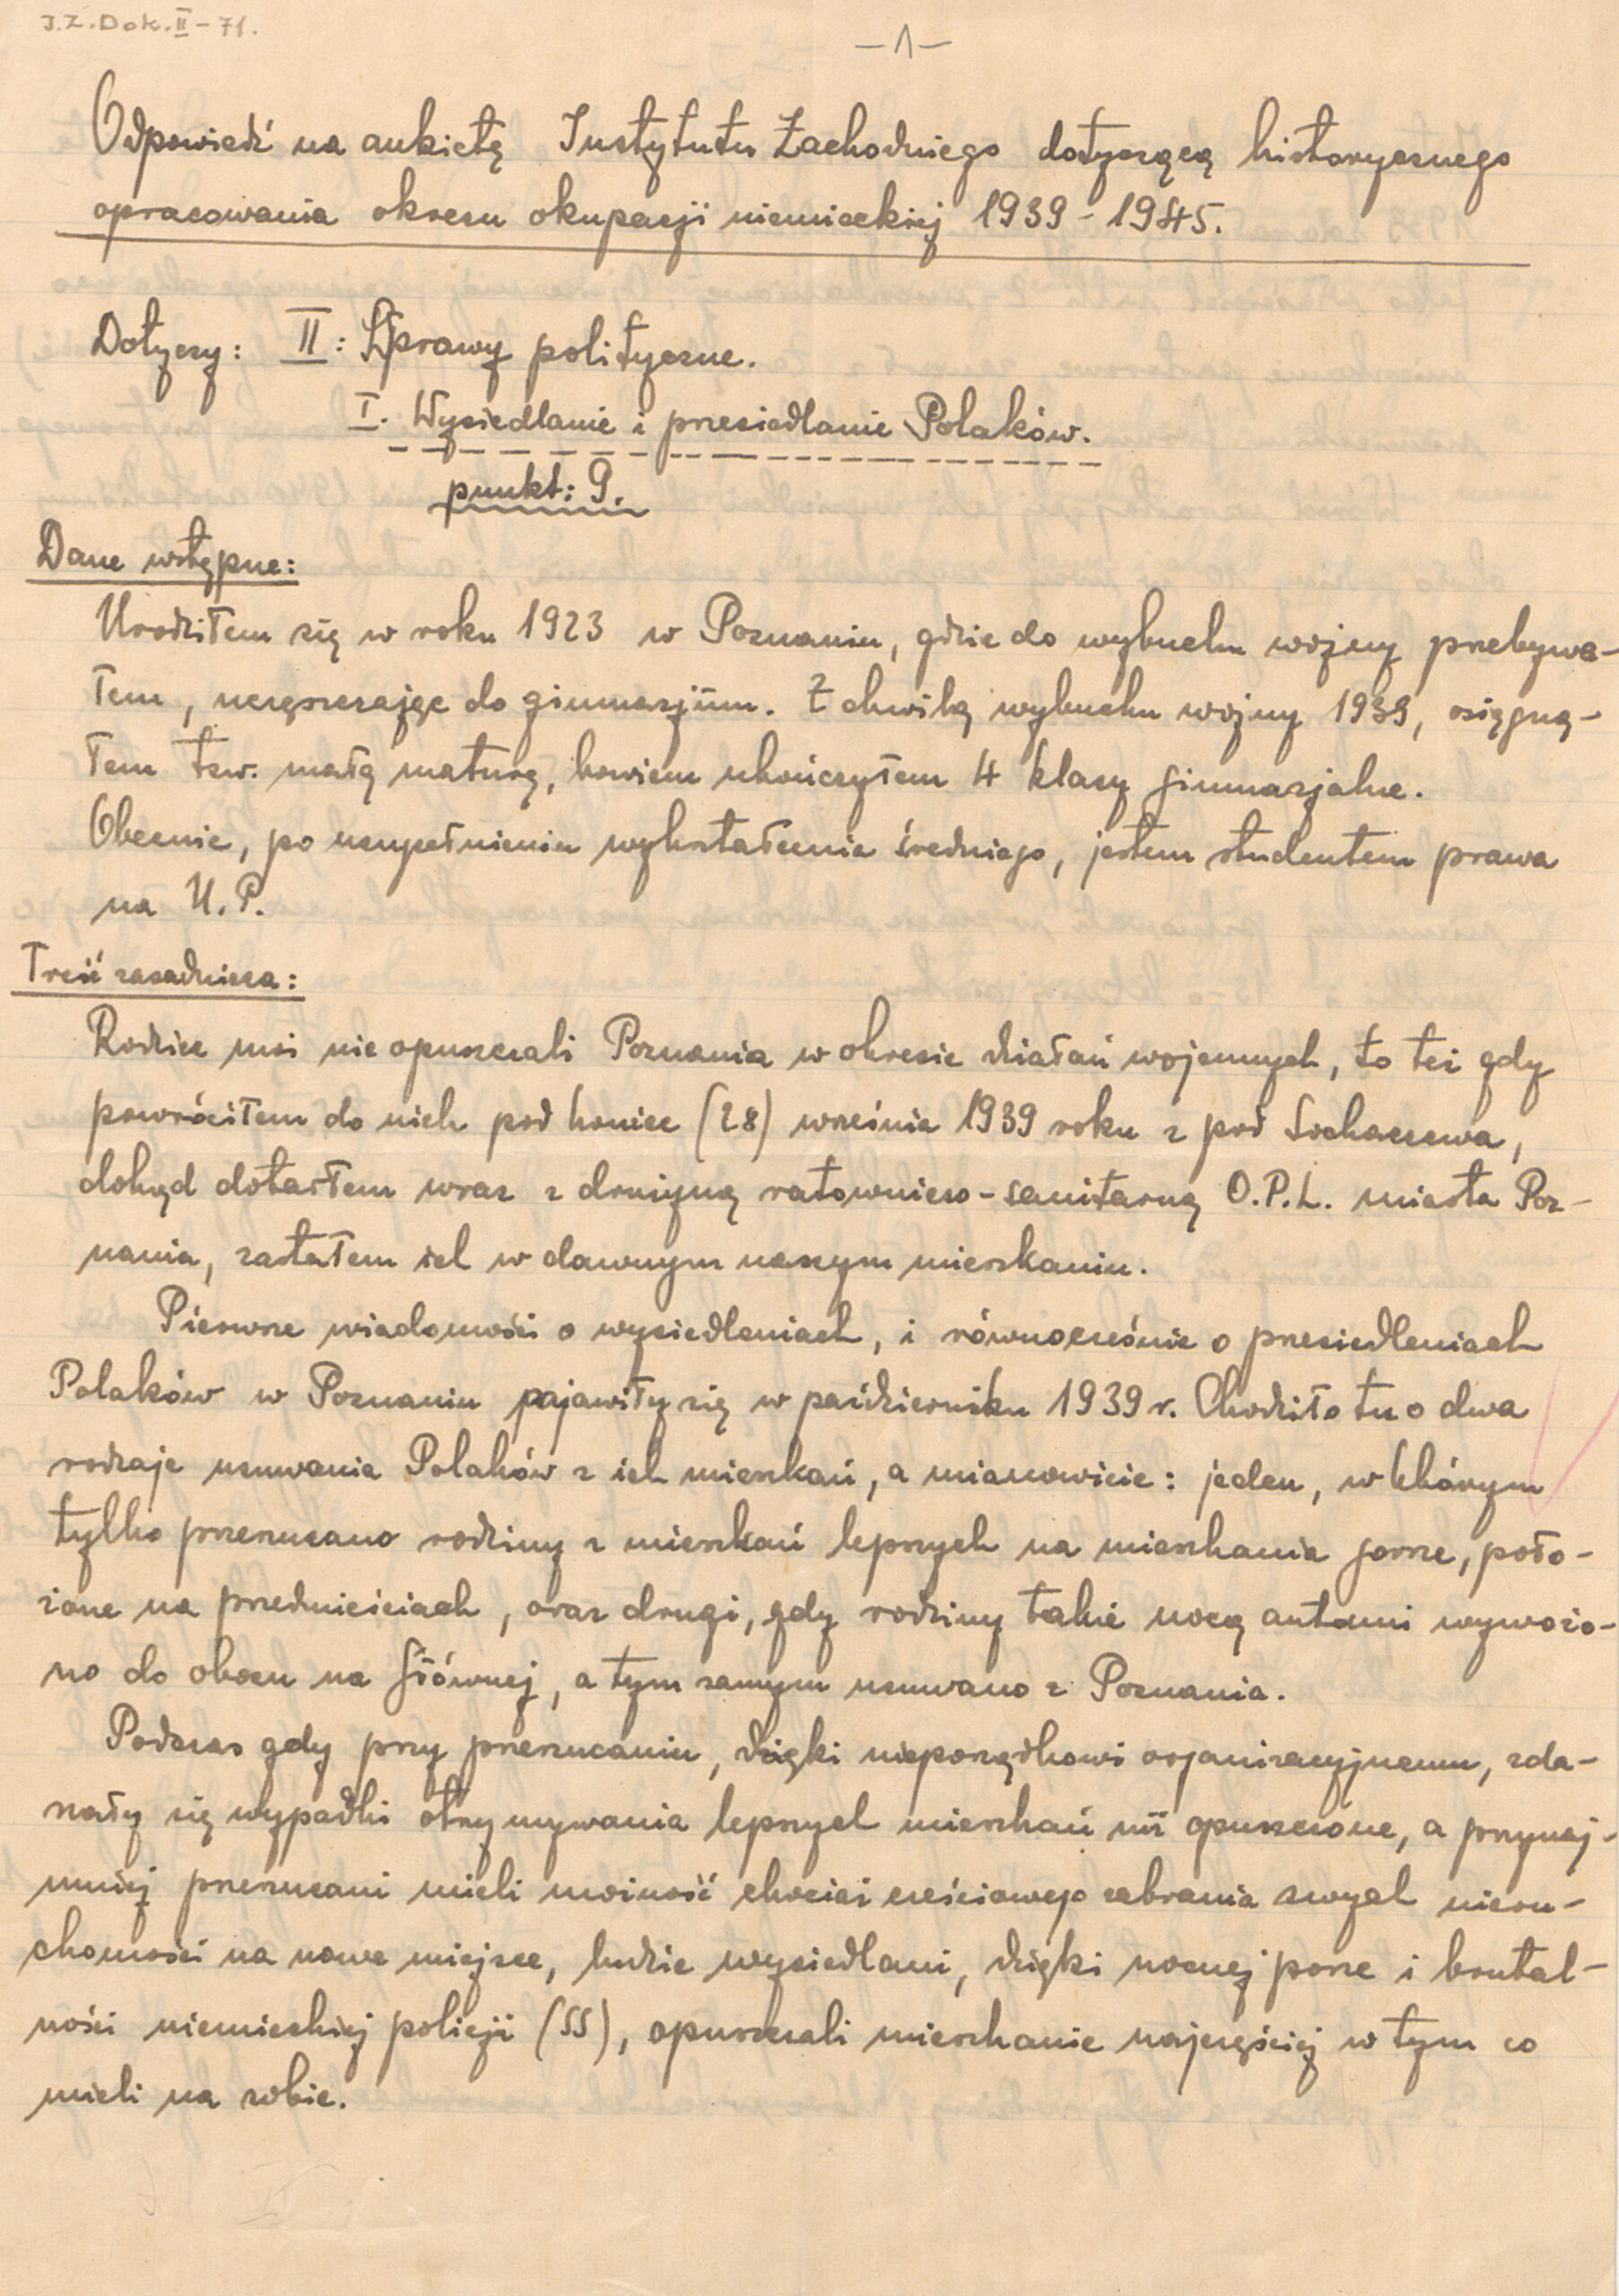 I.Z.Dok.II-71.
-1-
Odpowiedź na ankietę Instytutu Zachodniego dotyczącą historycznego
opracowania okresu okupacji niemieckiej 1939-1945.
Dotyczy: II: Sprawy polityczne.
I. Wysiedlanie i przesiedlanie Polaków.
punkt: 9.
Dane wstępne:
Urodziłem się w roku 1923 w Poznaniu, gdzie do wybuchu wojny przebywa-
łem, uczęszczając do gimnazjum. Z chwilą wybuchu wojny 1939, osiągną-
łem tzw. małą maturę, bowiem ukończyłem 4 klasy gimnazjalne.
Obecnie, po uzupełnieniu wykształcenia średniego, jestem studentem prawa
na U.P.
Treść zasadnicza:
Rodzice moi nie opuszczali Poznania w okresie działań wojennych, to też gdy
powróciłem do nich pod koniec (28) września 1939 roku z pod Sochaczewa,
dokąd dotarłem wraz z drużyną ratowniczo-sanitarną O.P.L. miasta Poz-
nania, zastałem ich w dawnym naszym mieszkaniu.
Pierwsze wiadomości o wysiedleniach, i równocześnie o przesiedleniach
Polaków w Poznaniu pojawiły się w październiku 1939 r. Chodziło tu o dwa
rodzaje usuwania Polaków z ich mieszkań, a mianowicie: jeden, w którym
tylko przerzucano rodziny z mieszkań lepszych na mieszkania gorsze, poło-
żone na przedmieściach, oraz drugi, gdy rodziny takie nocą autami wywożo-
no do obozu na Głównej, a tym samym usuwano z Poznania.
Podczas gdy przy przerzucaniu, dzięki nieporządkowi organizacyjnemu, zda-
rzały się wypadki otrzymywania lepszych mieszkań niż opuszczone, a przynaj-
mniej przerzucani mieli możność chociaż częściowego zabrania swych nieru-
chomości na nowe miejsce, ludzie wysiedlani, dzięki nocnej porze i brutal-
ności niemieckiej policji (SS), opuszczali mieszkanie najczęściej w tym co
mieli na sobie.